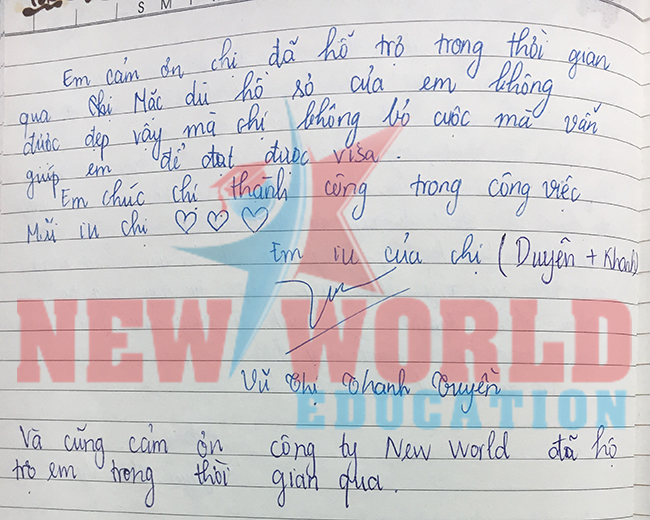 S M
Em cảm ơn chị đã hỗ trợ trong thời gian
qua chị Mặc dù hồ sơ của em không
được đẹp vậy mà chị không bỏ cuộc mà vẫn
giúp em để đạt được visa.
Em chúc chị thành công trong công việc
Mãi iu chị ♡ ♡ ♡
Em iu của chị (Duyên + Khanh)
NEW WORLD
Vũ Thị Thanh Truyền
EDUCATION
Và cũng cảm ơn công ty New World đã hộ
trợ em trong thời gian qua.